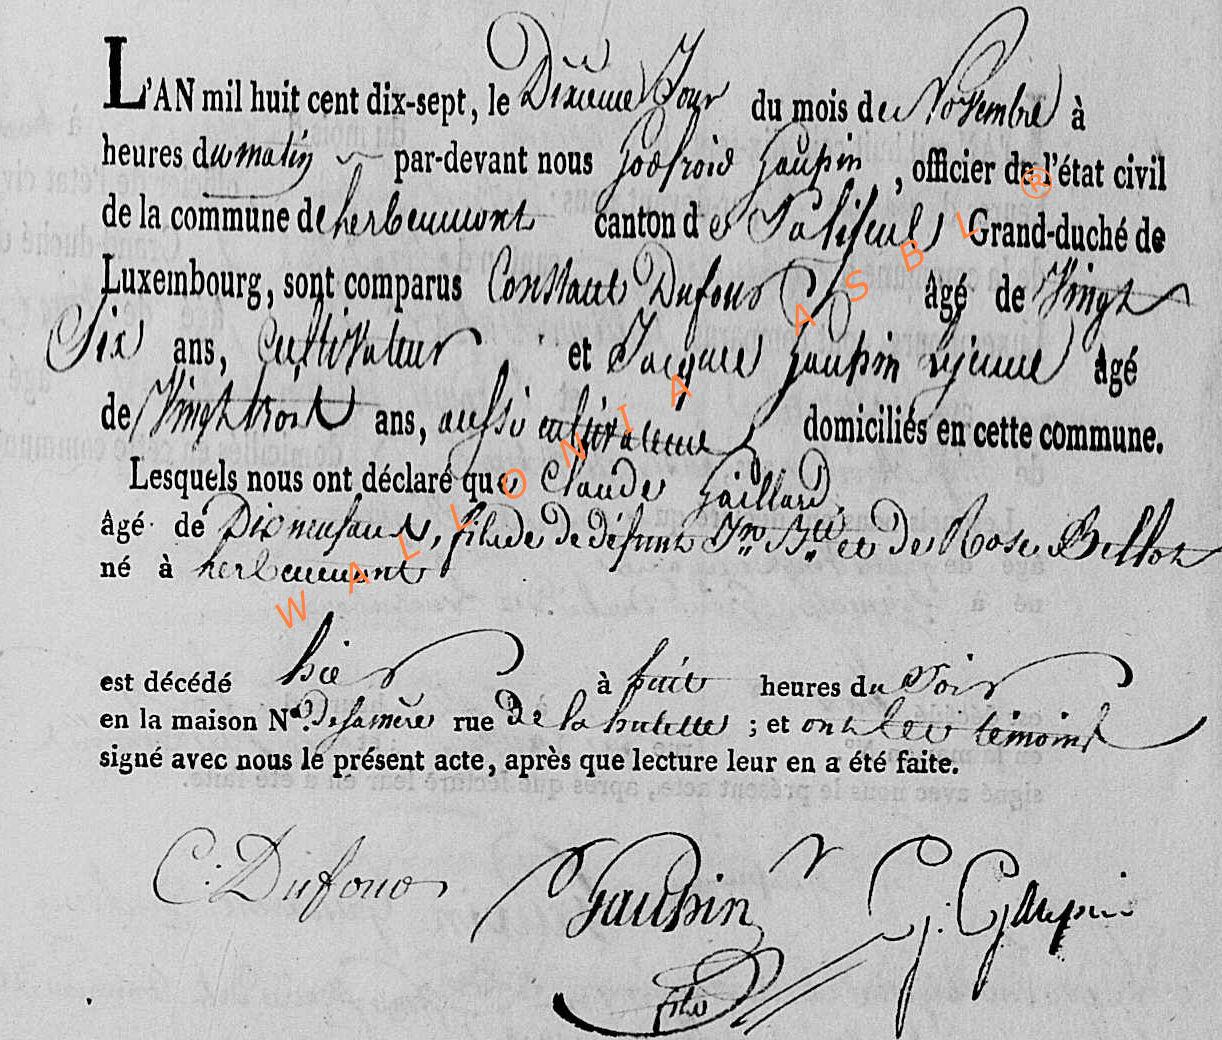 L'AN mil huit cent dix-sept, le Dixieme Jour du mois de Novembre à
heures du matin par-devant nous Godfroid Gaupin, officier de l'état civil
de la commune de herbeumont canton de Paliseul Grand-duché de
Luxembourg, sont comparus Constant Dufour âgé de Vingt
Six ans, Cultivateur et Jacque Gaupin Lejeune âgé
de Vingt trois ans, aussi cultivateur domiciliés en cette commune.
Lesquels nous ont déclaré que Claude Gaillard,
âgé de Dix neuf ans, fils de de défunt Jn. Bte et de Rose Billot
né à herbeumont
est décédé hier à huit heures du Soir
en la maison No. de sa mère rue de la hutette ; et ont les témoins
signé avec nous le présent acte, après que lecture leur en a été faite.
C. Dufour Gaupin G. Gaupin
fils
WALLONIA ASBL ®